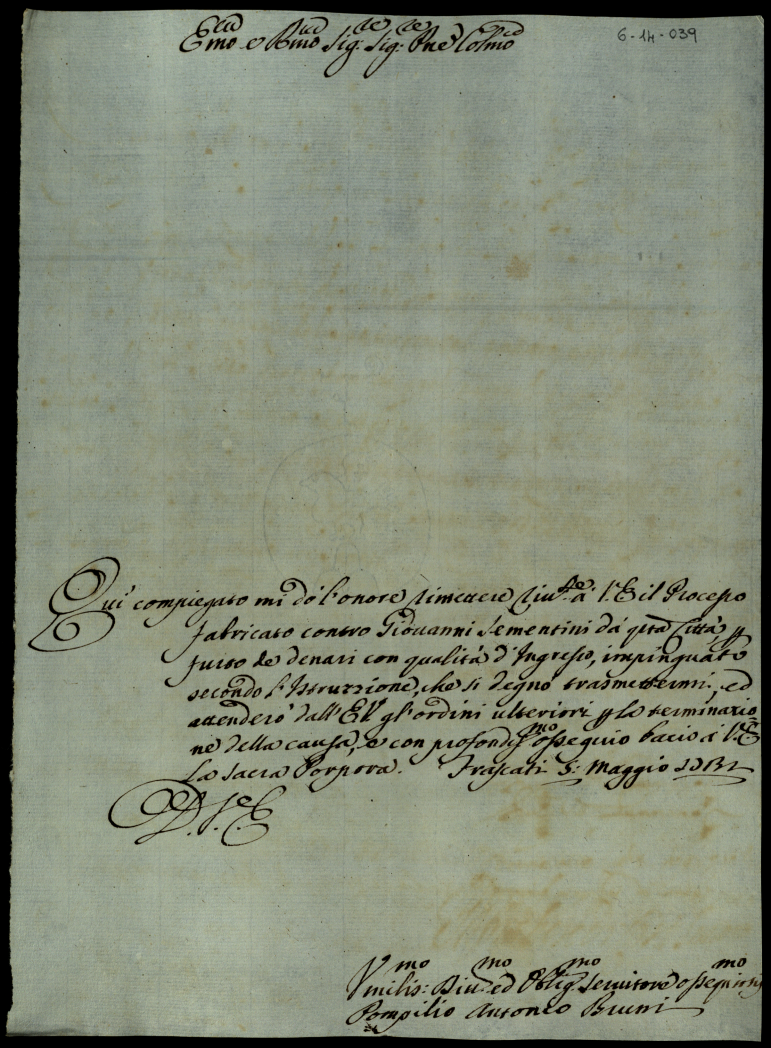 6-14-039
Emo e Rmo Sig:re Sig:re Pne Colmo
Qui compiegato mi dò l'onore rimettere riv.te à V.E il Processo
fabricato contro Giovanni Sementini dà qsta Città p
furto de denari con qualità d'Ingresso, impinguato
secondo l'Istruzzione, che si degnò trasmettermi, ed
attenderò dall'EV gl'ordini ulteriori p la terminazio
ne della causa, e con profondis.mo ossequio bacio à V.E
la sacra Porpora. Frascati 5: Maggio
D. V. E
Vmilis:mo Div:mo ed Oblig:mo Servitore ossequiosis:mo
Pompilio Antonio Bruni